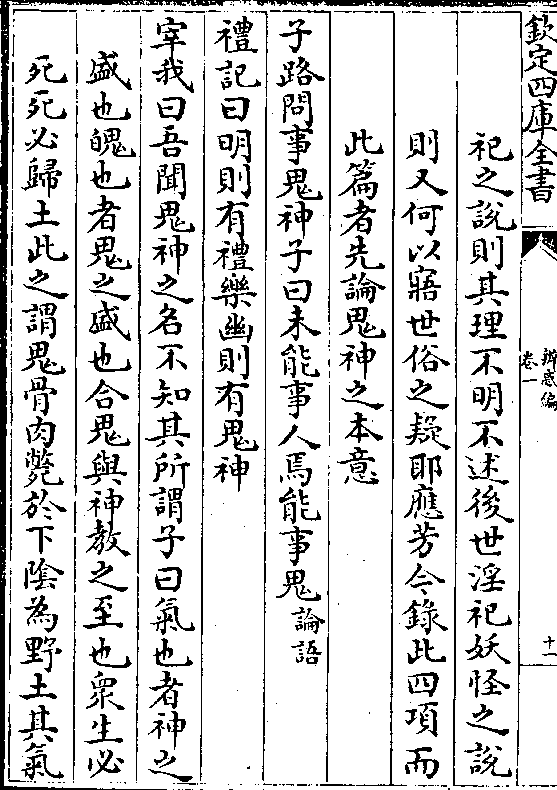 欽定四庫全書
辨惑編
卷一
十一
祀之說則其理不明不述後世淫祀妖怪之說
則又何以寤世俗之疑耶應芳今錄此四項而
此篇者先論鬼神之本意
子路問事鬼神子曰未能事人焉能事鬼論語
禮記曰明則有禮樂幽則有鬼神
宰我曰吾聞鬼神之名不知其所謂子曰氣也者神之
盛也魄也者鬼之盛也合鬼與神教之至也衆生必
死死必歸土此之謂鬼骨肉斃於下陰為野土其氣